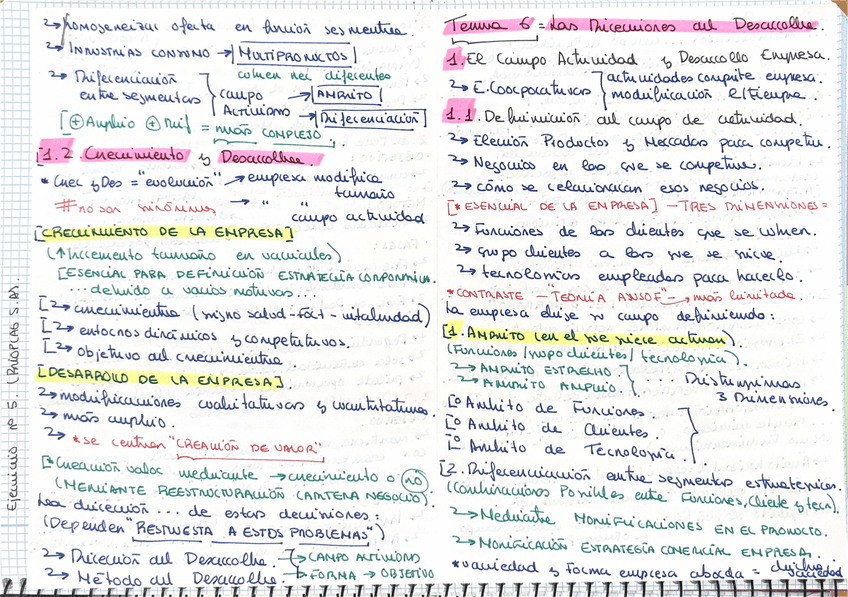 → homogeneizar oferta en función segmentue.
→ INDUSTRIAS CONSUMO → MULTIPRODUCTOS
cubren nec diferentes
→ Diferenciación
entre segmentos
campo → AMBITO
ACTIVIDAD → Diferenciación
[⊕ Amplio ⊕ Dif = más COMPLEJO.
[1.2. Crecimiento y Desarrollo.
* Crec y Des = "evolución" → empresa modifica
tamaño
# no son sinónimos → " " campo actividad
[CRECIMIENTO DE LA EMPRESA]
(↑ Incremento tamaño en variables)
[ESENCIAL PARA DEFINICIÓN ESTRATEGIA CORPORATIVA.
... debido a varios motivos ...
[→ crecimiento (signo salud - Fort - vitalidad)
[→ entornos dinámicos y competitivos.
[→ objetivo del crecimiento
[DESARROLLO DE LA EMPRESA].
→ modificaciones cualitativas y cuantitativas
→ más amplio.
→ * se centran "CREACIÓN DE VALOR"
[* Creación valor mediante → crecimiento o NO
(MEDIANTE REESTRUCTURACIÓN CARTERA NEGOCIO).
La dirección ... de estas decisiones:
(Dependen "RESPUESTA A ESTOS PROBLEMAS")
→ Dirección del Desarrollo. → CAMPO ACTIVIDAD
→ Método del Desarrollo. → FORMA → OBJETIVO
Ejercicio nº 5.
Tema 6 = Las Direcciones del Desarrollo.
1. El Campo Actividad y Desarrollo Empresa.
→ E. Coorporativas
actividades compite empresa.
modificación el tiempo.
1.1. Definición del campo de actividad.
→ Elección Productos y Mercados para competir.
→ Negocios en los que se compite.
→ cómo se relacionan esos negocios.
[* ESENCIAL DE LA EMPRESA] - TRES DIMENSIONES =
→ Funciones de los clientes que se cubren.
→ grupo clientes a los que se sirve.
→ tecnologías empleadas para hacerlo.
* CONTRASTE - "TEORÍA ANSOF" → más limitada.
La empresa elige n campo definiendo:
[1. AMBITO (en el que quiere actuar).
(Funciones / grupo clientes / tecnología).
→ AMBITO ESTRECHO
→ AMBITO AMPLIO.
... Distinguimos
3 Dimensiones.
[º Ambito de Funciones.
[º Ambito de Clientes.
[º Ambito de Tecnología.
[2. Diferenciación entre segmentos estratégicos.
(Combinaciones Posibles entre Funciones, Cliente y tecn).
→ Mediante MODIFICACIONES EN EL PRODUCTO.
→ MODIFICACIÓN ESTRATEGIA COMERCIAL EMPRESA.
* variedad y forma empresa aborda = dicha
variedad